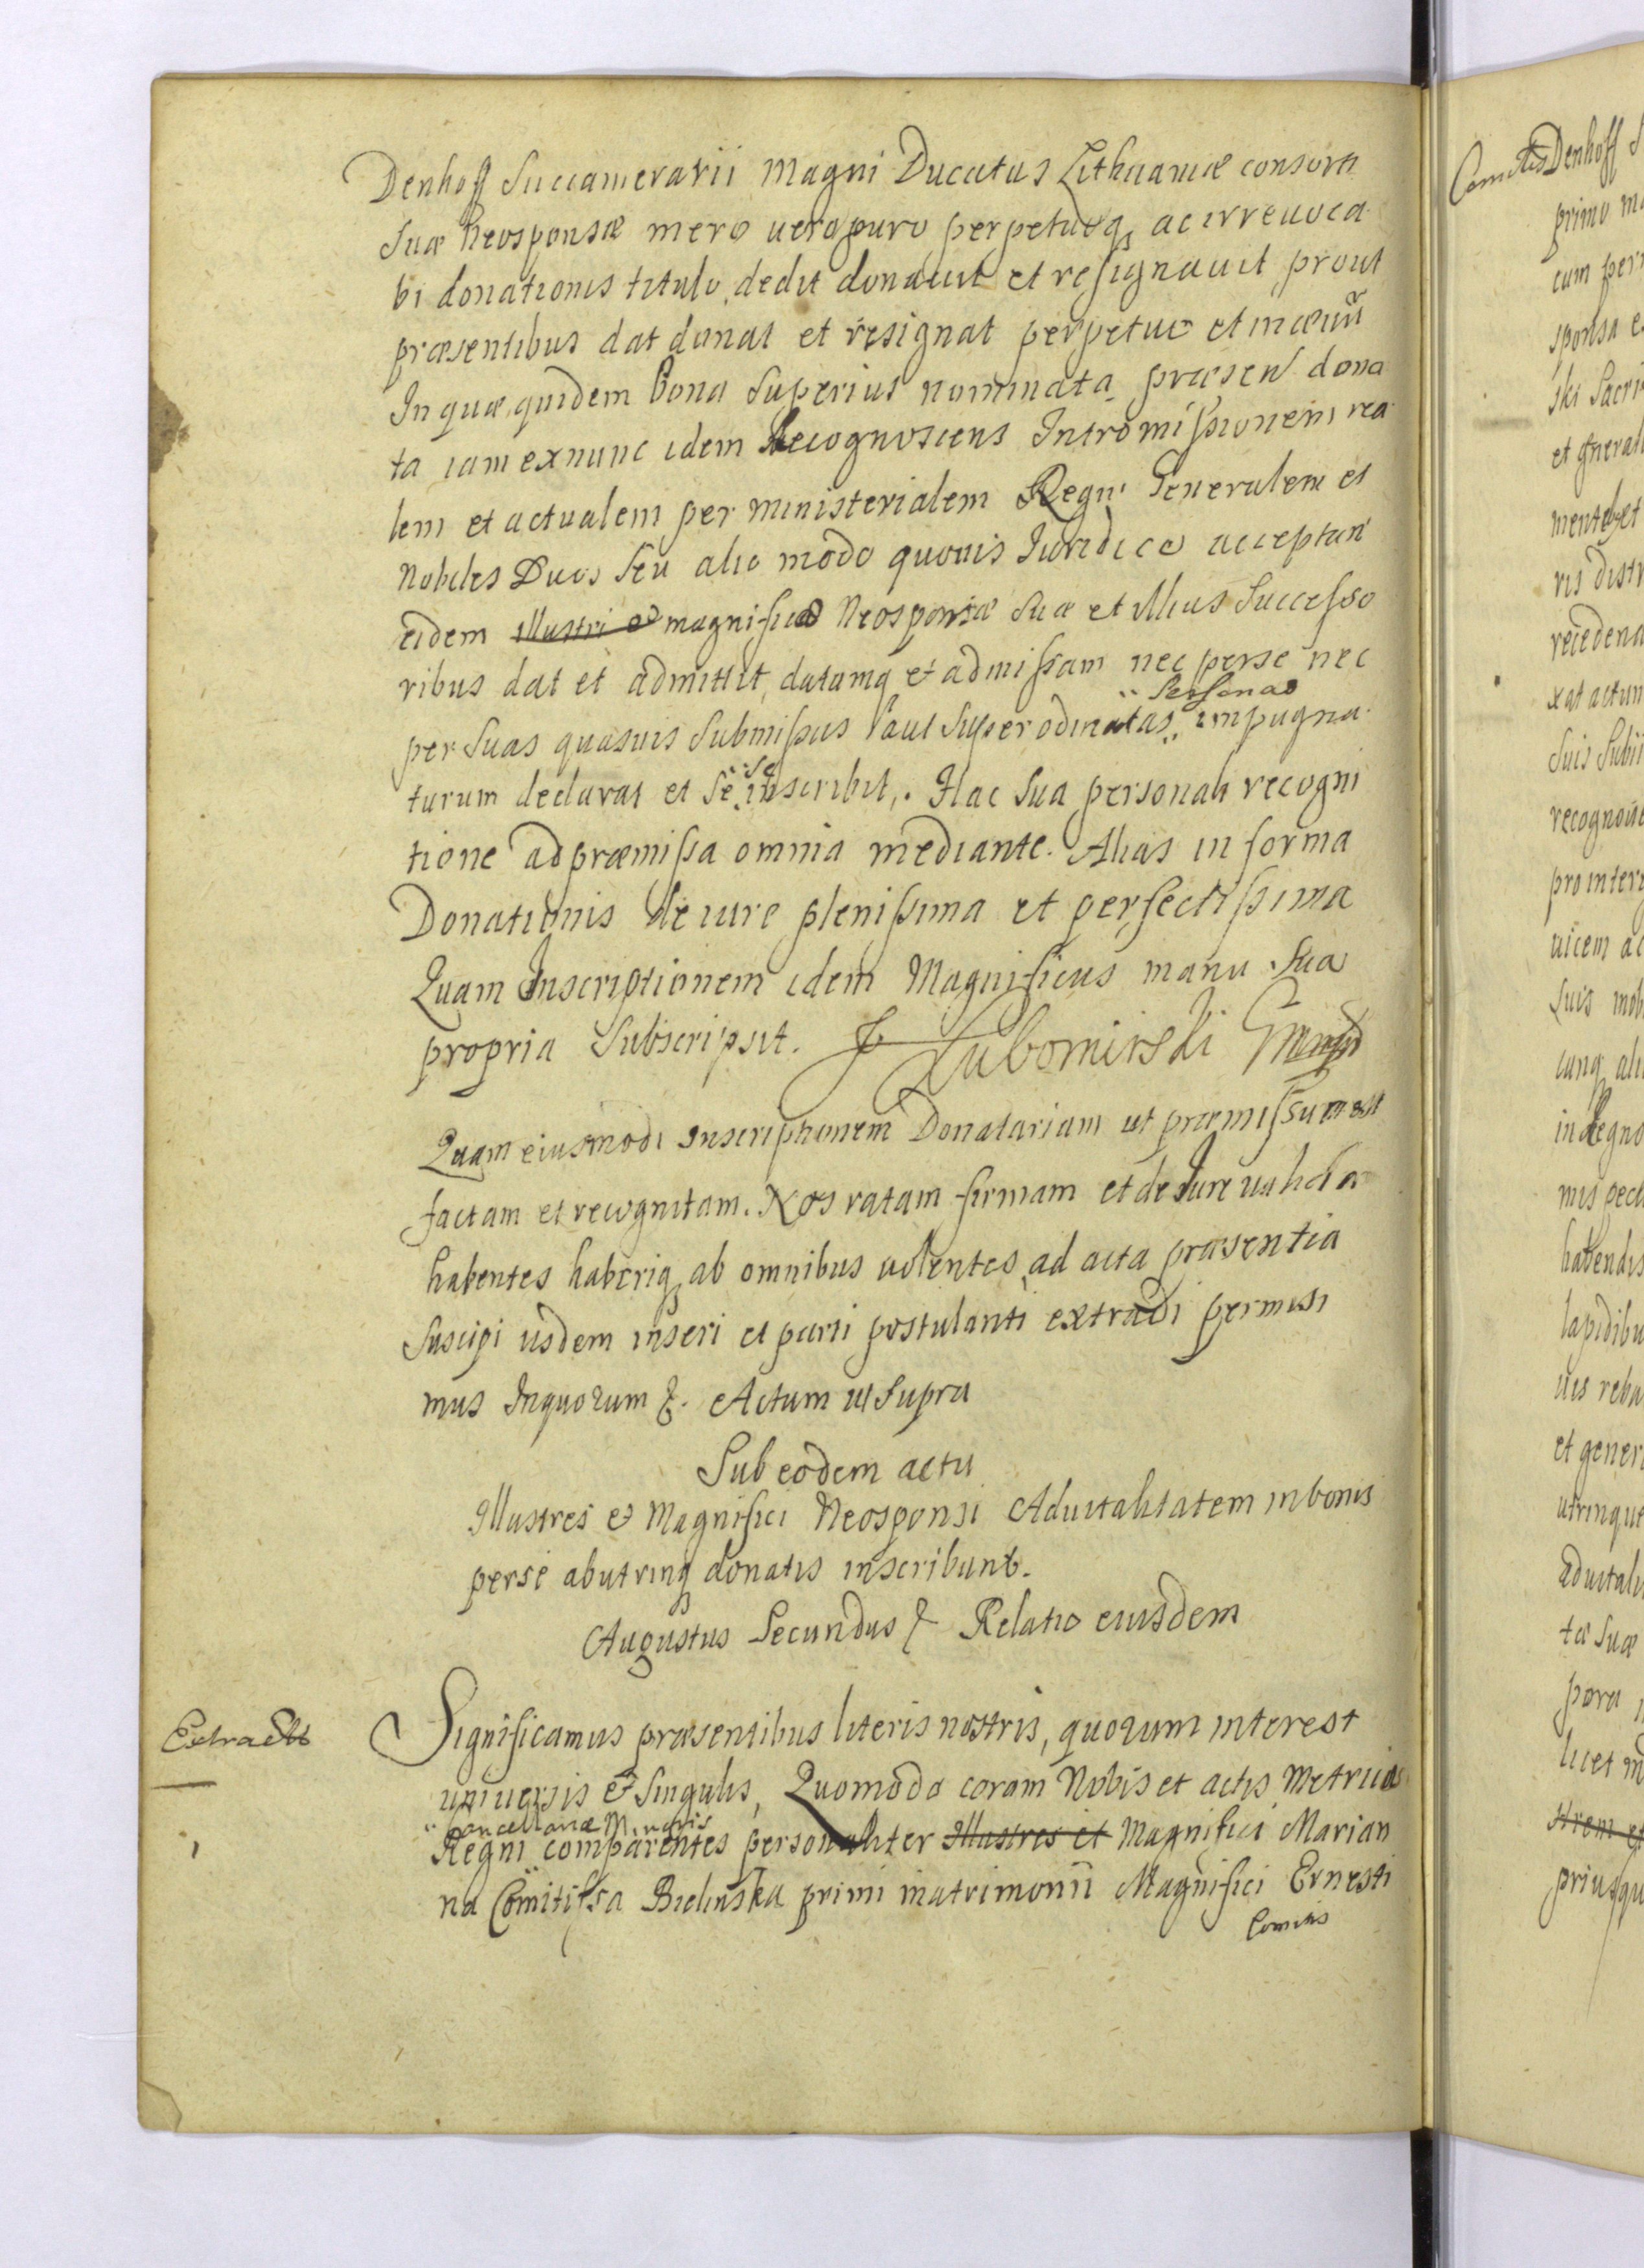 Denhoff Succamerarii Magni Ducatus Lithuaniæ consorti
Suæ Neosponsæ mero vero puro perpetuoq; ac irrevoca
bi donationis titulo, dedit donavit et resignavit prout
præsentibus dat donat et resignat perpetuo et in ævũ
In quæ quidem bona superius nominata, præsen dona
ta iam exnunc idem Recognoscens Intromissionem rea
lem et actualem per ministerialem Regni Generalem et
Nobiles Duos seu alio modo quovis Iuridice acceptan
eidem illustri et magnificæ Neosponsæ suæ et illius Successo
ribus dat et admittit, datamq et admissam nec perse nec
personas
per suas quasvis submissas aut superodinatas impugna
se
turum declarat et se inscribit,. Hac sua personali recogni
tione ad præmissa omnia mediante. Alias in forma
Donationis de iure plenissima et perfectissima
Quam Inscriptionem idem Magnificus manu sua
propria subscripsit. J Lubomirski
Quam eiusmodi inscriptionem Donatariam ut præmissum est
factam et recognitam. Nos ratam firmam et de Iure valida
habentes haberiq; ab omnibus volentes, ad acta præsentia
suscipi iisdem inseri et parti postulanti extradi permisi
mus Inquorum &. Actum ut supra
Sub eodem actu
Illustres et Magnifici Neosponsi Advitalitatem in bonis
perse abutrinq; donatis inscribunt.
Augustus Secundus & Relatio eiusdem
Extractt Significamus præsentibus literis nostris, quorum interest
universis et singulis, Quomodo coram Nobis et actis Metricæ
Cancellariæ Minoris
Regni comparentes personaliter Illustres et Magnifici Marian
na Comitissa Bielinska primi matrimonii Magnifici Ernesti
Comitis
Comitis Denhoff
primo
cum per
sponsa e
ski Sacri
et gnerali
mente et
ris distr
recedend
xat actum
suis subii
recognou
pro inter
vicem ac
suis mob
cunq ali
in Regno
mis pecu
habendis
lapidibu
vis reba
et gener
utrinque
advitali
tæ suæ
para
licet m
strem et
priusqu